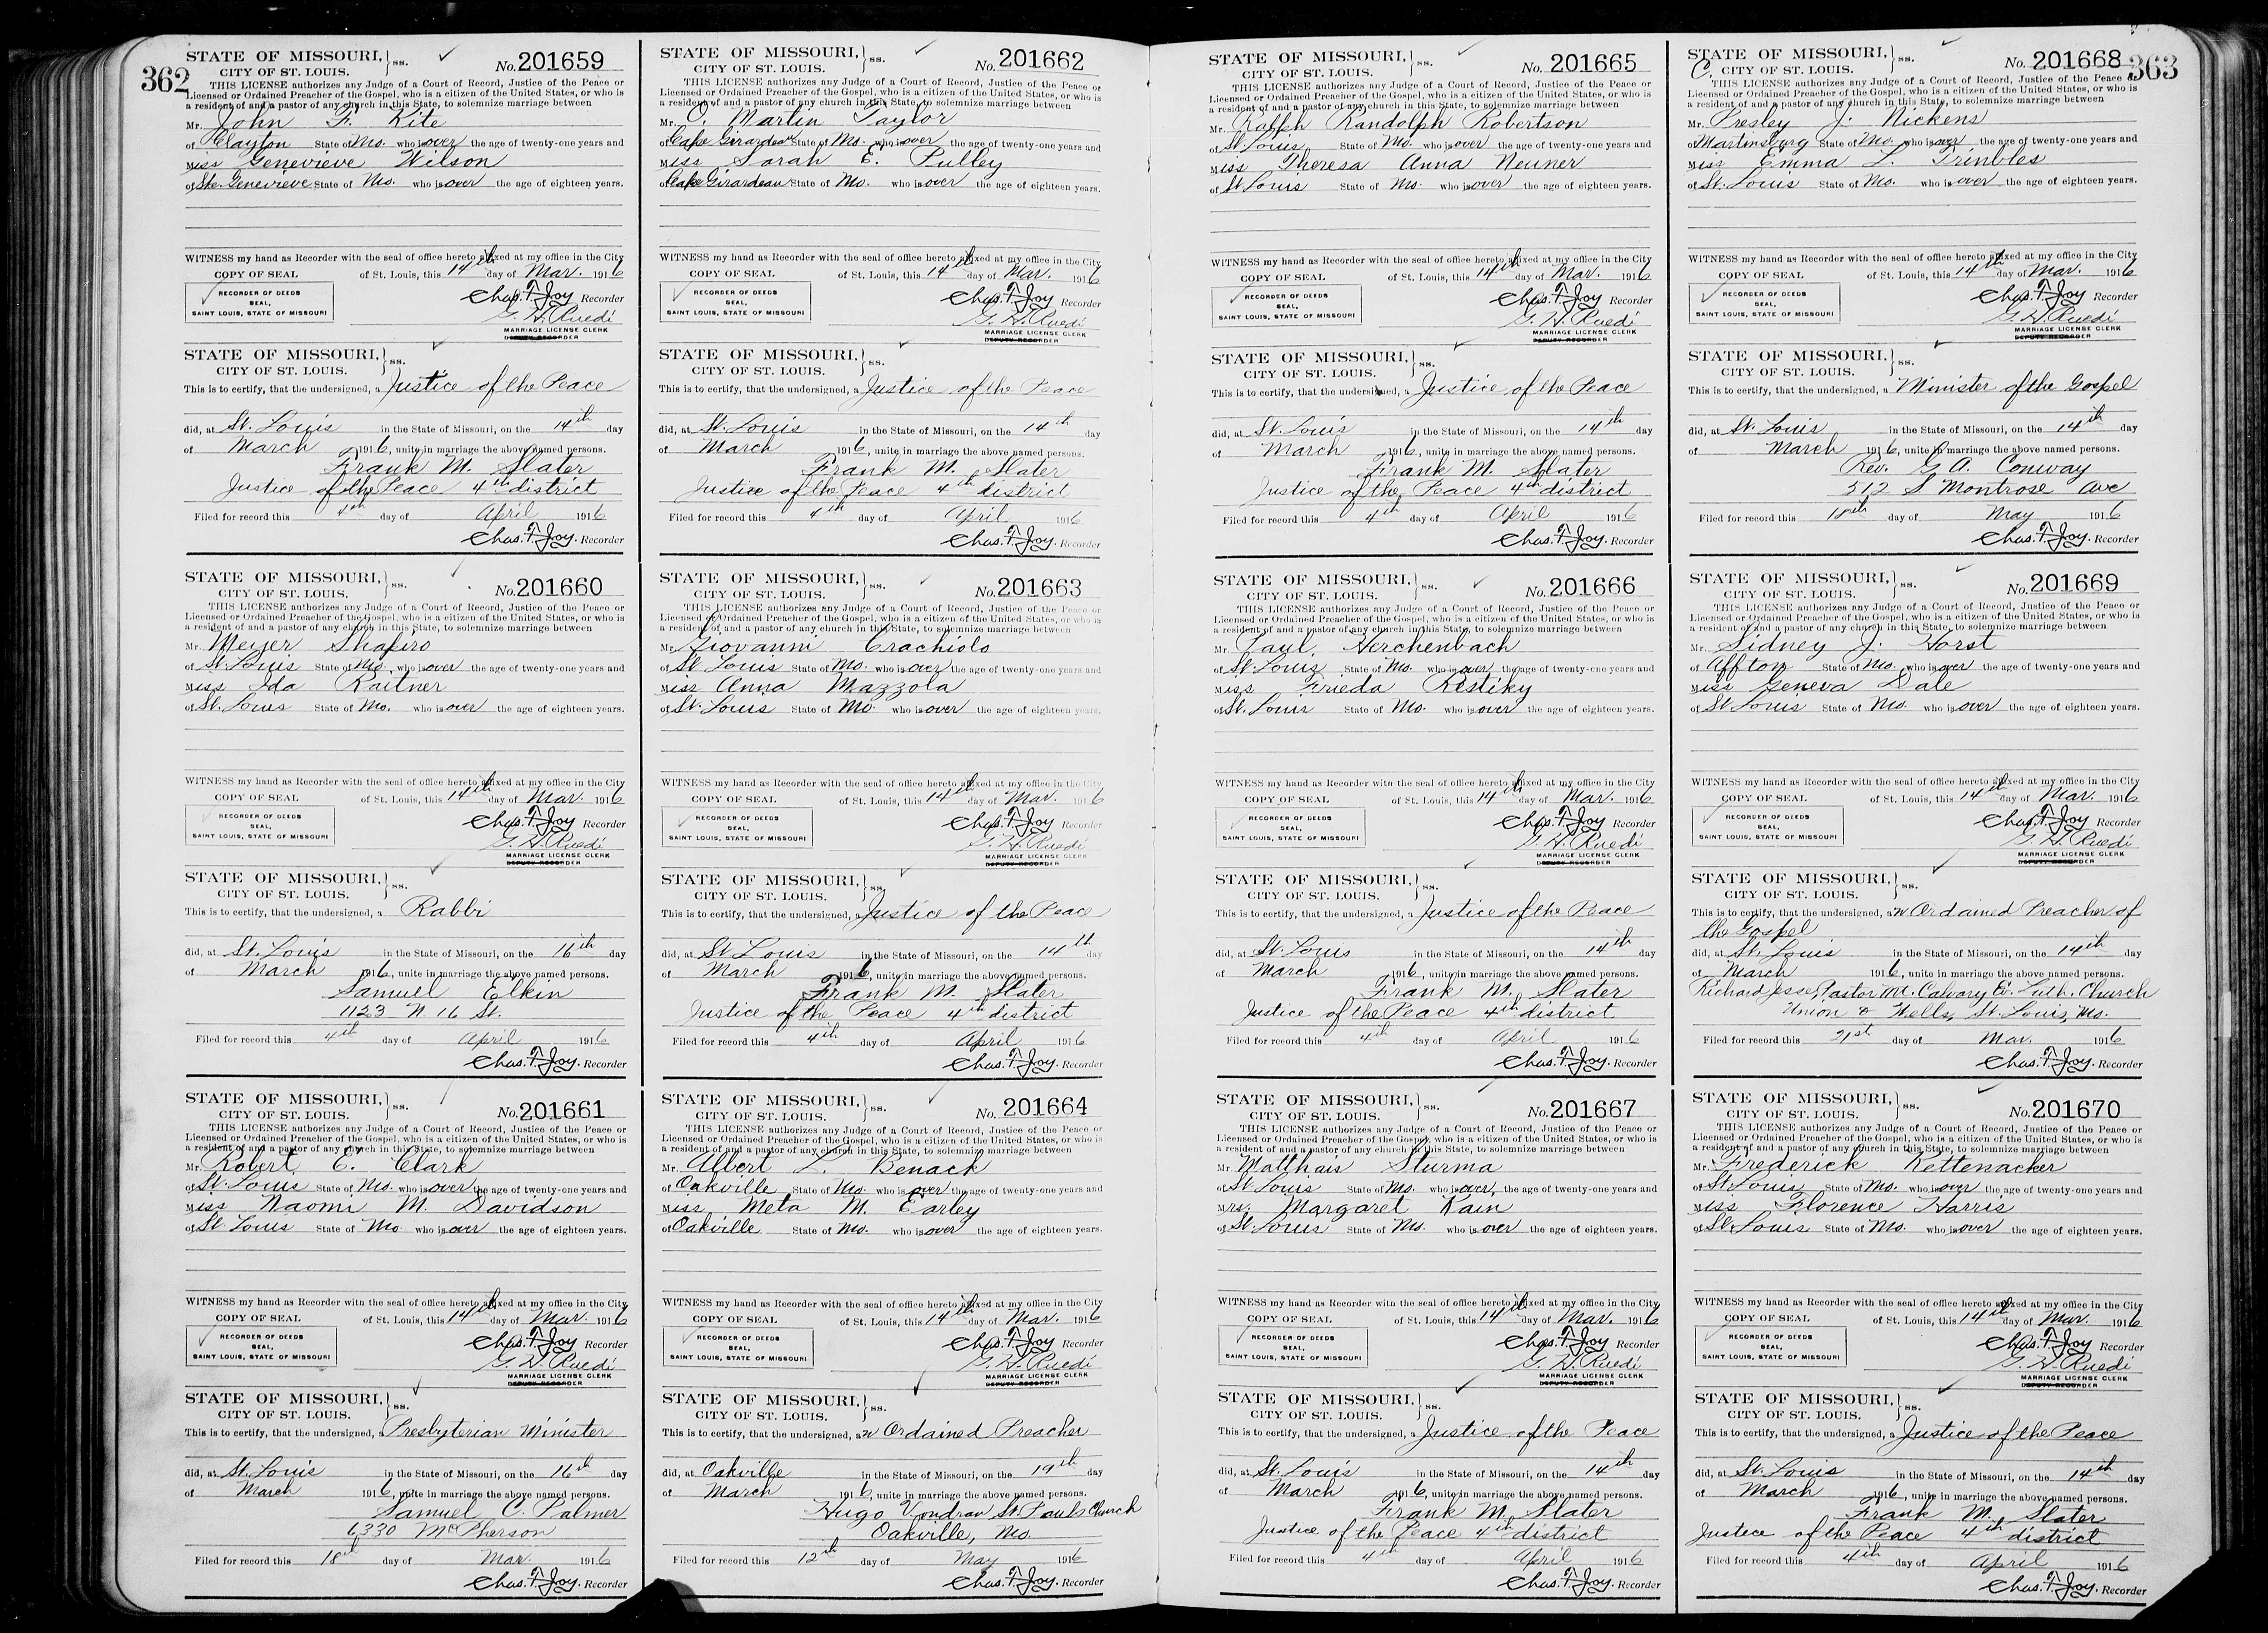 362
STATE OF MISSOURI, } ss.
CITY OF ST. LOUIS.
No. 201659
THIS LICENSE authorizes any Judge of a Court of Record, Justice of the Peace or
Licensed or Ordained Preacher of the Gospel, who is a citizen of the United States, or who is
a resident of and a pastor of any church in this State, to solemnize marriage between
Mr. John F. Kite
of Clayton State of Mo. who is over the age of twenty-one years and
Miss Genevieve Wilson
of Ste. Genevieve State of Mo. who is over the age of eighteen years.
WITNESS my hand as Recorder with the seal of office hereto affixed at my office in the City
COPY OF SEAL of St. Louis, this 14th day of Mar. 1916
RECORDER OF DEEDS
SEAL,
SAINT LOUIS, STATE OF MISSOURI
Chas. F. Joy Recorder
G. H. Ruedi
MARRIAGE LICENSE CLERK
DEPUTY RECORDER
STATE OF MISSOURI, } ss.
CITY OF ST. LOUIS.
This is to certify, that the undersigned, a Justice of the Peace
did, at St. Louis in the State of Missouri, on the 14th day
of March 1916, unite in marriage the above named persons.
Frank M. Slater
Justice of the Peace 4th district
Filed for record this 4th day of April 1916
Chas. F. Joy. Recorder
STATE OF MISSOURI, } ss.
CITY OF ST. LOUIS.
No. 201660
THIS LICENSE authorizes any Judge of a Court of Record, Justice of the Peace or
Licensed or Ordained Preacher of the Gospel, who is a citizen of the United States, or who is
a resident of and a pastor of any church in this State, to solemnize marriage between
Mr. Meyer Shapiro
of St. Louis State of Mo. who is over the age of twenty-one years and
Miss Ida Raitner
of St. Louis State of Mo. who is over the age of eighteen years.
WITNESS my hand as Recorder with the seal of office hereto affixed at my office in the City
COPY OF SEAL of St. Louis, this 14th day of Mar. 1916
RECORDER OF DEEDS
SEAL,
SAINT LOUIS, STATE OF MISSOURI
Chas. F. Joy Recorder
G. H. Ruedi
MARRIAGE LICENSE CLERK
DEPUTY RECORDER
STATE OF MISSOURI, } ss.
CITY OF ST. LOUIS.
This is to certify, that the undersigned, a Rabbi
did, at St. Louis in the State of Missouri, on the 16th day
of March 1916, unite in marriage the above named persons.
Samuel Elkin
1123 N. 16 St.
Filed for record this 4th day of April 1916
Chas. F. Joy. Recorder
STATE OF MISSOURI, } ss.
CITY OF ST. LOUIS.
No. 201661
THIS LICENSE authorizes any Judge of a Court of Record, Justice of the Peace or
Licensed or Ordained Preacher of the Gospel, who is a citizen of the United States, or who is
a resident of and a pastor of any church in this State, to solemnize marriage between
Mr. Robert E. Clark
of St. Louis State of Mo. who is over the age of twenty-one years and
Miss Naomi M. Davidson
of St Louis State of Mo who is over the age of eighteen years.
WITNESS my hand as Recorder with the seal of office hereto affixed at my office in the City
COPY OF SEAL of St. Louis, this 14th day of Mar. 1916
RECORDER OF DEEDS
SEAL,
SAINT LOUIS, STATE OF MISSOURI
Chas. F. Joy Recorder
G. H. Ruedi
MARRIAGE LICENSE CLERK
DEPUTY RECORDER
STATE OF MISSOURI, } ss.
CITY OF ST. LOUIS.
This is to certify, that the undersigned, a Presbyterian Minister
did, at St. Louis in the State of Missouri, on the 16th day
of March 1916, unite in marriage the above named persons.
Samuel C. Palmer
6330 McPherson
Filed for record this 18th day of Mar. 1916
Chas. F. Joy. Recorder
STATE OF MISSOURI, } ss.
CITY OF ST. LOUIS.
No. 201662
THIS LICENSE authorizes any Judge of a Court of Record, Justice of the Peace or
Licensed or Ordained Preacher of the Gospel, who is a citizen of the United States, or who is
a resident of and a pastor of any church in this State, to solemnize marriage between
Mr. C. Martin Taylor
of Cape Girardeau State of Mo. who is over the age of twenty-one years and
Miss Sarah E. Pulley
of Cape Girardeau State of Mo. who is over the age of eighteen years.
WITNESS my hand as Recorder with the seal of office hereto affixed at my office in the City
COPY OF SEAL of St. Louis, this 14th day of Mar. 1916
RECORDER OF DEEDS
SEAL,
SAINT LOUIS, STATE OF MISSOURI
Chas. F. Joy Recorder
G. H. Ruedi
MARRIAGE LICENSE CLERK
DEPUTY RECORDER
STATE OF MISSOURI, } ss.
CITY OF ST. LOUIS.
This is to certify, that the undersigned, a Justice of the Peace
did, at St. Louis in the State of Missouri, on the 14th day
of March 1916, unite in marriage the above named persons.
Frank M. Slater
Justice of the Peace 4th district
Filed for record this 4th day of April 1916
Chas. F. Joy. Recorder
STATE OF MISSOURI, } ss.
CITY OF ST. LOUIS.
No. 201663
THIS LICENSE authorizes any Judge of a Court of Record, Justice of the Peace or
Licensed or Ordained Preacher of the Gospel, who is a citizen of the United States, or who is
a resident of and a pastor of any church in this State, to solemnize marriage between
Mr. Giovanni Crachiolo
of St Louis State of Mo. who is over the age of twenty-one years and
Miss Anna Mazzola
of St. Louis State of Mo. who is over the age of eighteen years.
WITNESS my hand as Recorder with the seal of office hereto affixed at my office in the City
COPY OF SEAL of St. Louis, this 14th day of Mar. 1916
RECORDER OF DEEDS
SEAL,
SAINT LOUIS, STATE OF MISSOURI
Chas. F. Joy Recorder
G. H. Ruedi
MARRIAGE LICENSE CLERK
DEPUTY RECORDER
STATE OF MISSOURI, } ss.
CITY OF ST. LOUIS.
This is to certify, that the undersigned, a Justice of the Peace
did, at St Louis in the State of Missouri, on the 14th day
of March 1916, unite in marriage the above named persons.
Frank M. Slater
Justice of the Peace 4th district
Filed for record this 4th day of April 1916
Chas. F. Joy. Recorder
STATE OF MISSOURI, } ss.
CITY OF ST. LOUIS.
No. 201664
THIS LICENSE authorizes any Judge of a Court of Record, Justice of the Peace or
Licensed or Ordained Preacher of the Gospel, who is a citizen of the United States, or who is
a resident of and a pastor of any church in this State, to solemnize marriage between
Mr. Albert L. Benack
of Oakville State of Mo. who is over the age of twenty-one years and
Miss Meta M. Earley
of Oakville State of Mo. who is over the age of eighteen years.
WITNESS my hand as Recorder with the seal of office hereto affixed at my office in the City
COPY OF SEAL of St. Louis, this 14th day of Mar. 1916
RECORDER OF DEEDS
SEAL,
SAINT LOUIS, STATE OF MISSOURI
Chas. F. Joy Recorder
G. H. Ruedi
MARRIAGE LICENSE CLERK
DEPUTY RECORDER
STATE OF MISSOURI, } ss.
CITY OF ST. LOUIS.
This is to certify, that the undersigned, an Ordained Preacher
did, at Oakville in the State of Missouri, on the 19th day
of March 1916, unite in marriage the above named persons.
Hugo Vondran St. Pauls Church
Oakville, Mo.
Filed for record this 12th day of May 1916
Chas. F. Joy. Recorder
STATE OF MISSOURI, } ss.
CITY OF ST. LOUIS.
No. 201665
THIS LICENSE authorizes any Judge of a Court of Record, Justice of the Peace or
Licensed or Ordained Preacher of the Gospel, who is a citizen of the United States, or who is
a resident of and a pastor of any church in this State, to solemnize marriage between
Mr. Ralph Randolph Robertson
of St. Louis State of Mo. who is over the age of twenty-one years and
Miss Theresa Anna Neuner
of St. Louis State of Mo. who is over the age of eighteen years.
WITNESS my hand as Recorder with the seal of office hereto affixed at my office in the City
COPY OF SEAL of St. Louis, this 14th day of Mar. 1916
RECORDER OF DEEDS
SEAL,
SAINT LOUIS, STATE OF MISSOURI
Chas. F. Joy Recorder
G. H. Ruedi
MARRIAGE LICENSE CLERK
DEPUTY RECORDER
STATE OF MISSOURI, } ss.
CITY OF ST. LOUIS.
This is to certify, that the undersigned, a Justice of the Peace
did, at St. Louis in the State of Missouri, on the 14th day
of March 1916, unite in marriage the above named persons.
Frank M. Slater
Justice of the Peace 4th district
Filed for record this 4th day of April 1916
Chas. F. Joy. Recorder
STATE OF MISSOURI, } ss.
CITY OF ST. LOUIS.
No. 201666
THIS LICENSE authorizes any Judge of a Court of Record, Justice of the Peace or
Licensed or Ordained Preacher of the Gospel, who is a citizen of the United States, or who is
a resident of and a pastor of any church in this State, to solemnize marriage between
Mr. Paul Herchenbach
of St. Louis State of Mo. who is over the age of twenty-one years and
Miss Frieda Restiky
of St. Louis State of Mo. who is over the age of eighteen years.
WITNESS my hand as Recorder with the seal of office hereto affixed at my office in the City
COPY OF SEAL of St. Louis, this 14th day of Mar. 1916
RECORDER OF DEEDS
SEAL,
SAINT LOUIS, STATE OF MISSOURI
Chas. F. Joy Recorder
G. H. Ruedi
MARRIAGE LICENSE CLERK
DEPUTY RECORDER
STATE OF MISSOURI, } ss.
CITY OF ST. LOUIS.
This is to certify, that the undersigned, a Justice of the Peace
did, at St. Louis in the State of Missouri, on the 14th day
of March 1916, unite in marriage the above named persons.
Frank M. Slater
Justice of the Peace 4th district
Filed for record this 4th day of April 1916
Chas. F. Joy. Recorder
STATE OF MISSOURI, } ss.
CITY OF ST. LOUIS.
No. 201667
THIS LICENSE authorizes any Judge of a Court of Record, Justice of the Peace or
Licensed or Ordained Preacher of the Gospel, who is a citizen of the United States, or who is
a resident of and a pastor of any church in this State, to solemnize marriage between
Mr. Matthais Sturma
of St Louis State of Mo. who is over, the age of twenty-one years and
Mrs. Margaret Kain
of St. Louis State of Mo. who is over the age of eighteen years.
WITNESS my hand as Recorder with the seal of office hereto affixed at my office in the City
COPY OF SEAL of St. Louis, this 14th day of Mar. 1916
RECORDER OF DEEDS
SEAL,
SAINT LOUIS, STATE OF MISSOURI
Chas. F. Joy Recorder
G. H. Ruedi
MARRIAGE LICENSE CLERK
DEPUTY RECORDER
STATE OF MISSOURI, } ss.
CITY OF ST. LOUIS.
This is to certify, that the undersigned, a Justice of the Peace
did, at St. Louis in the State of Missouri, on the 14th day
of March 1916, unite in marriage the above named persons.
Frank M. Slater
Justice of the Peace 4th district
Filed for record this 4th day of April 1916
Chas. F. Joy. Recorder
363
STATE OF MISSOURI, } ss.
C. CITY OF ST. LOUIS.
No. 201668
THIS LICENSE authorizes any Judge of a Court of Record, Justice of the Peace or
Licensed or Ordained Preacher of the Gospel, who is a citizen of the United States, or who is
a resident of and a pastor of any church in this State, to solemnize marriage between
Mr. Presley J. Nickens
of Martinsburg State of Mo. who is over the age of twenty-one years and
Miss Emma L. Trinbles
of St. Louis State of Mo. who is over the age of eighteen years.
WITNESS my hand as Recorder with the seal of office hereto affixed at my office in the City
COPY OF SEAL of St. Louis, this 14th day of Mar. 1916
RECORDER OF DEEDS
SEAL,
SAINT LOUIS, STATE OF MISSOURI
Chas. F. Joy Recorder
G. H. Ruedi
MARRIAGE LICENSE CLERK
DEPUTY RECORDER
STATE OF MISSOURI, } ss.
CITY OF ST. LOUIS.
This is to certify, that the undersigned, a Minister of the Gospel
did, at St. Louis in the State of Missouri, on the 14th day
of March 1916, unite in marriage the above named persons.
Rev. G. A. Conway
512 S Montrose Ave
Filed for record this 18th day of May 1916
Chas. F. Joy. Recorder
STATE OF MISSOURI, } ss.
CITY OF ST. LOUIS.
No. 201669
THIS LICENSE authorizes any Judge of a Court of Record, Justice of the Peace or
Licensed or Ordained Preacher of the Gospel, who is a citizen of the United States, or who is
a resident of and a pastor of any church in this State, to solemnize marriage between
Mr. Sidney J. Horst
of Affton State of Mo. who is over the age of twenty-one years and
Miss Geneva Dale
of St Louis State of Mo. who is over the age of eighteen years.
WITNESS my hand as Recorder with the seal of office hereto affixed at my office in the City
COPY OF SEAL of St. Louis, this 14th day of Mar. 1916
RECORDER OF DEEDS
SEAL,
SAINT LOUIS, STATE OF MISSOURI
Chas. F. Joy Recorder
G. H. Ruedi
MARRIAGE LICENSE CLERK
DEPUTY RECORDER
STATE OF MISSOURI, } ss.
CITY OF ST. LOUIS.
This is to certify, that the undersigned, an Ordained Preacher of
the Gospel
did, at St. Louis in the State of Missouri, on the 14th day
of March 1916, unite in marriage the above named persons.
Richard Jesse, Pastor Mt. Calvary Ev. Luth. Church
Union & Wells, St. Louis, Mo.
Filed for record this 21st day of Mar. 1916
Chas. F. Joy. Recorder
STATE OF MISSOURI, } ss.
CITY OF ST. LOUIS.
No. 201670
THIS LICENSE authorizes any Judge of a Court of Record, Justice of the Peace or
Licensed or Ordained Preacher of the Gospel, who is a citizen of the United States, or who is
a resident of and a pastor of any church in this State, to solemnize marriage between
Mr. Frederick Kettenacker
of St. Louis State of Mo. who is over the age of twenty-one years and
Miss Florence Harris
of St. Louis State of Mo. who is over the age of eighteen years.
WITNESS my hand as Recorder with the seal of office hereto affixed at my office in the City
COPY OF SEAL of St. Louis, this 14th day of Mar. 1916
RECORDER OF DEEDS
SEAL,
SAINT LOUIS, STATE OF MISSOURI
Chas. F. Joy Recorder
G. H. Ruedi
MARRIAGE LICENSE CLERK
DEPUTY RECORDER
STATE OF MISSOURI, } ss.
CITY OF ST. LOUIS.
This is to certify, that the undersigned, a Justice of the Peace
did, at St. Louis in the State of Missouri, on the 14th day
of March 1916, unite in marriage the above named persons.
Frank M. Slater
Justice of the Peace 4th district
Filed for record this 4th day of April 1916
Chas. F. Joy. Recorder